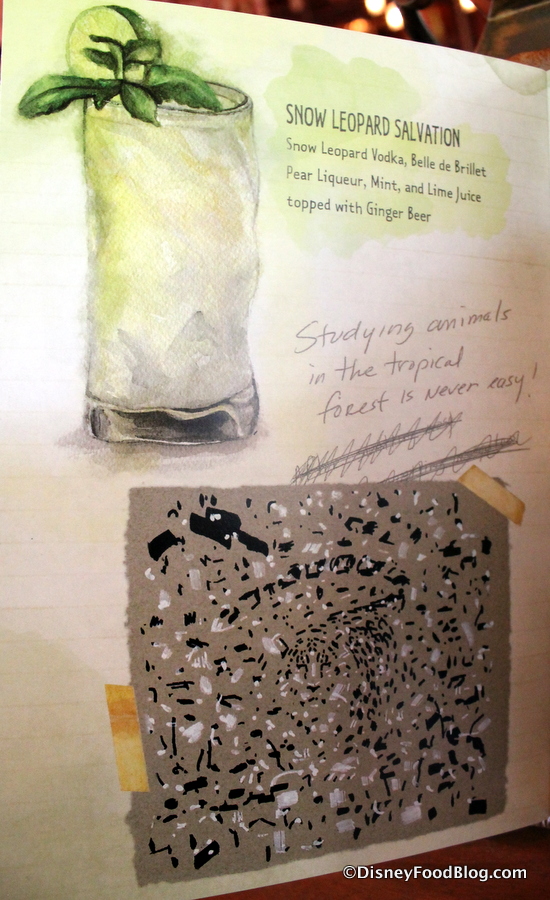 SNOW LEOPARD SALVATION
Snow Leopard Vodka, Belle de Brillet
Pear Liqueur, Mint, and Lime Juice
topped with Ginger Beer
Studying animals
in the tropical
forest is never easy!
©DisneyFoodBlog.com